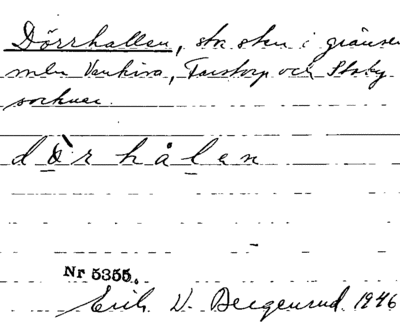 Dörrhallen, stx sten i gränsen
mln Vankiva, Farstorp och Stoby
socknar.
dòrhålen
Nr 5355.
Erik V. 1946